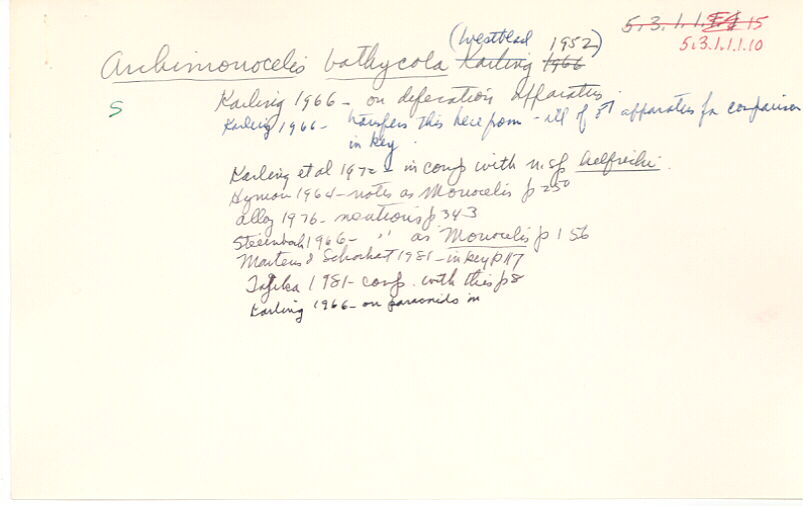 5.3.1.1.1.15
5.3.1.1.1.10
(Westblad 1952)
Archimonocelis bathycola Karling 1966
S
Karling 1966 - on defecation apparatus
Karling 1966 - transfers this here from - ill of ♂ apparatus for comparison
in key.
Karling et al 1972 - in comp with n.sp helfrichi.
Hyman 1964 - notes as Monocelis p 250
Alloy 1976 - mentions p 343
1966 - " as Monocelis p 156
Martens & Schockaert 1981 - in key p 117
Tajika 1981 - comp. with this p 8
Karling 1966 - on paracnids in